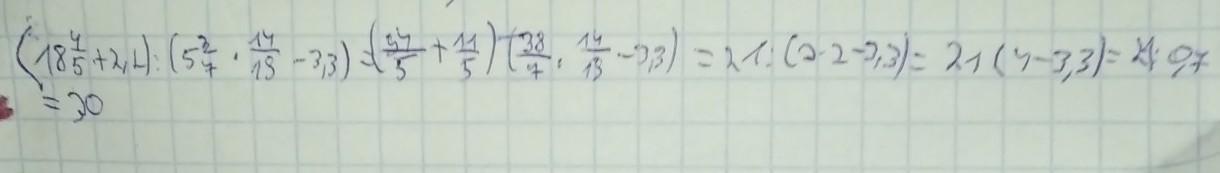 (18 4/5 + 2,2) : (5 2/7 · 14/19 - 3,3) = (94/5 + 11/5) (38/7 · 14/19 - 3,3) = 21 : (2·2-3,3) = 21 (4-3,3) = 21 : 0,7
= 30